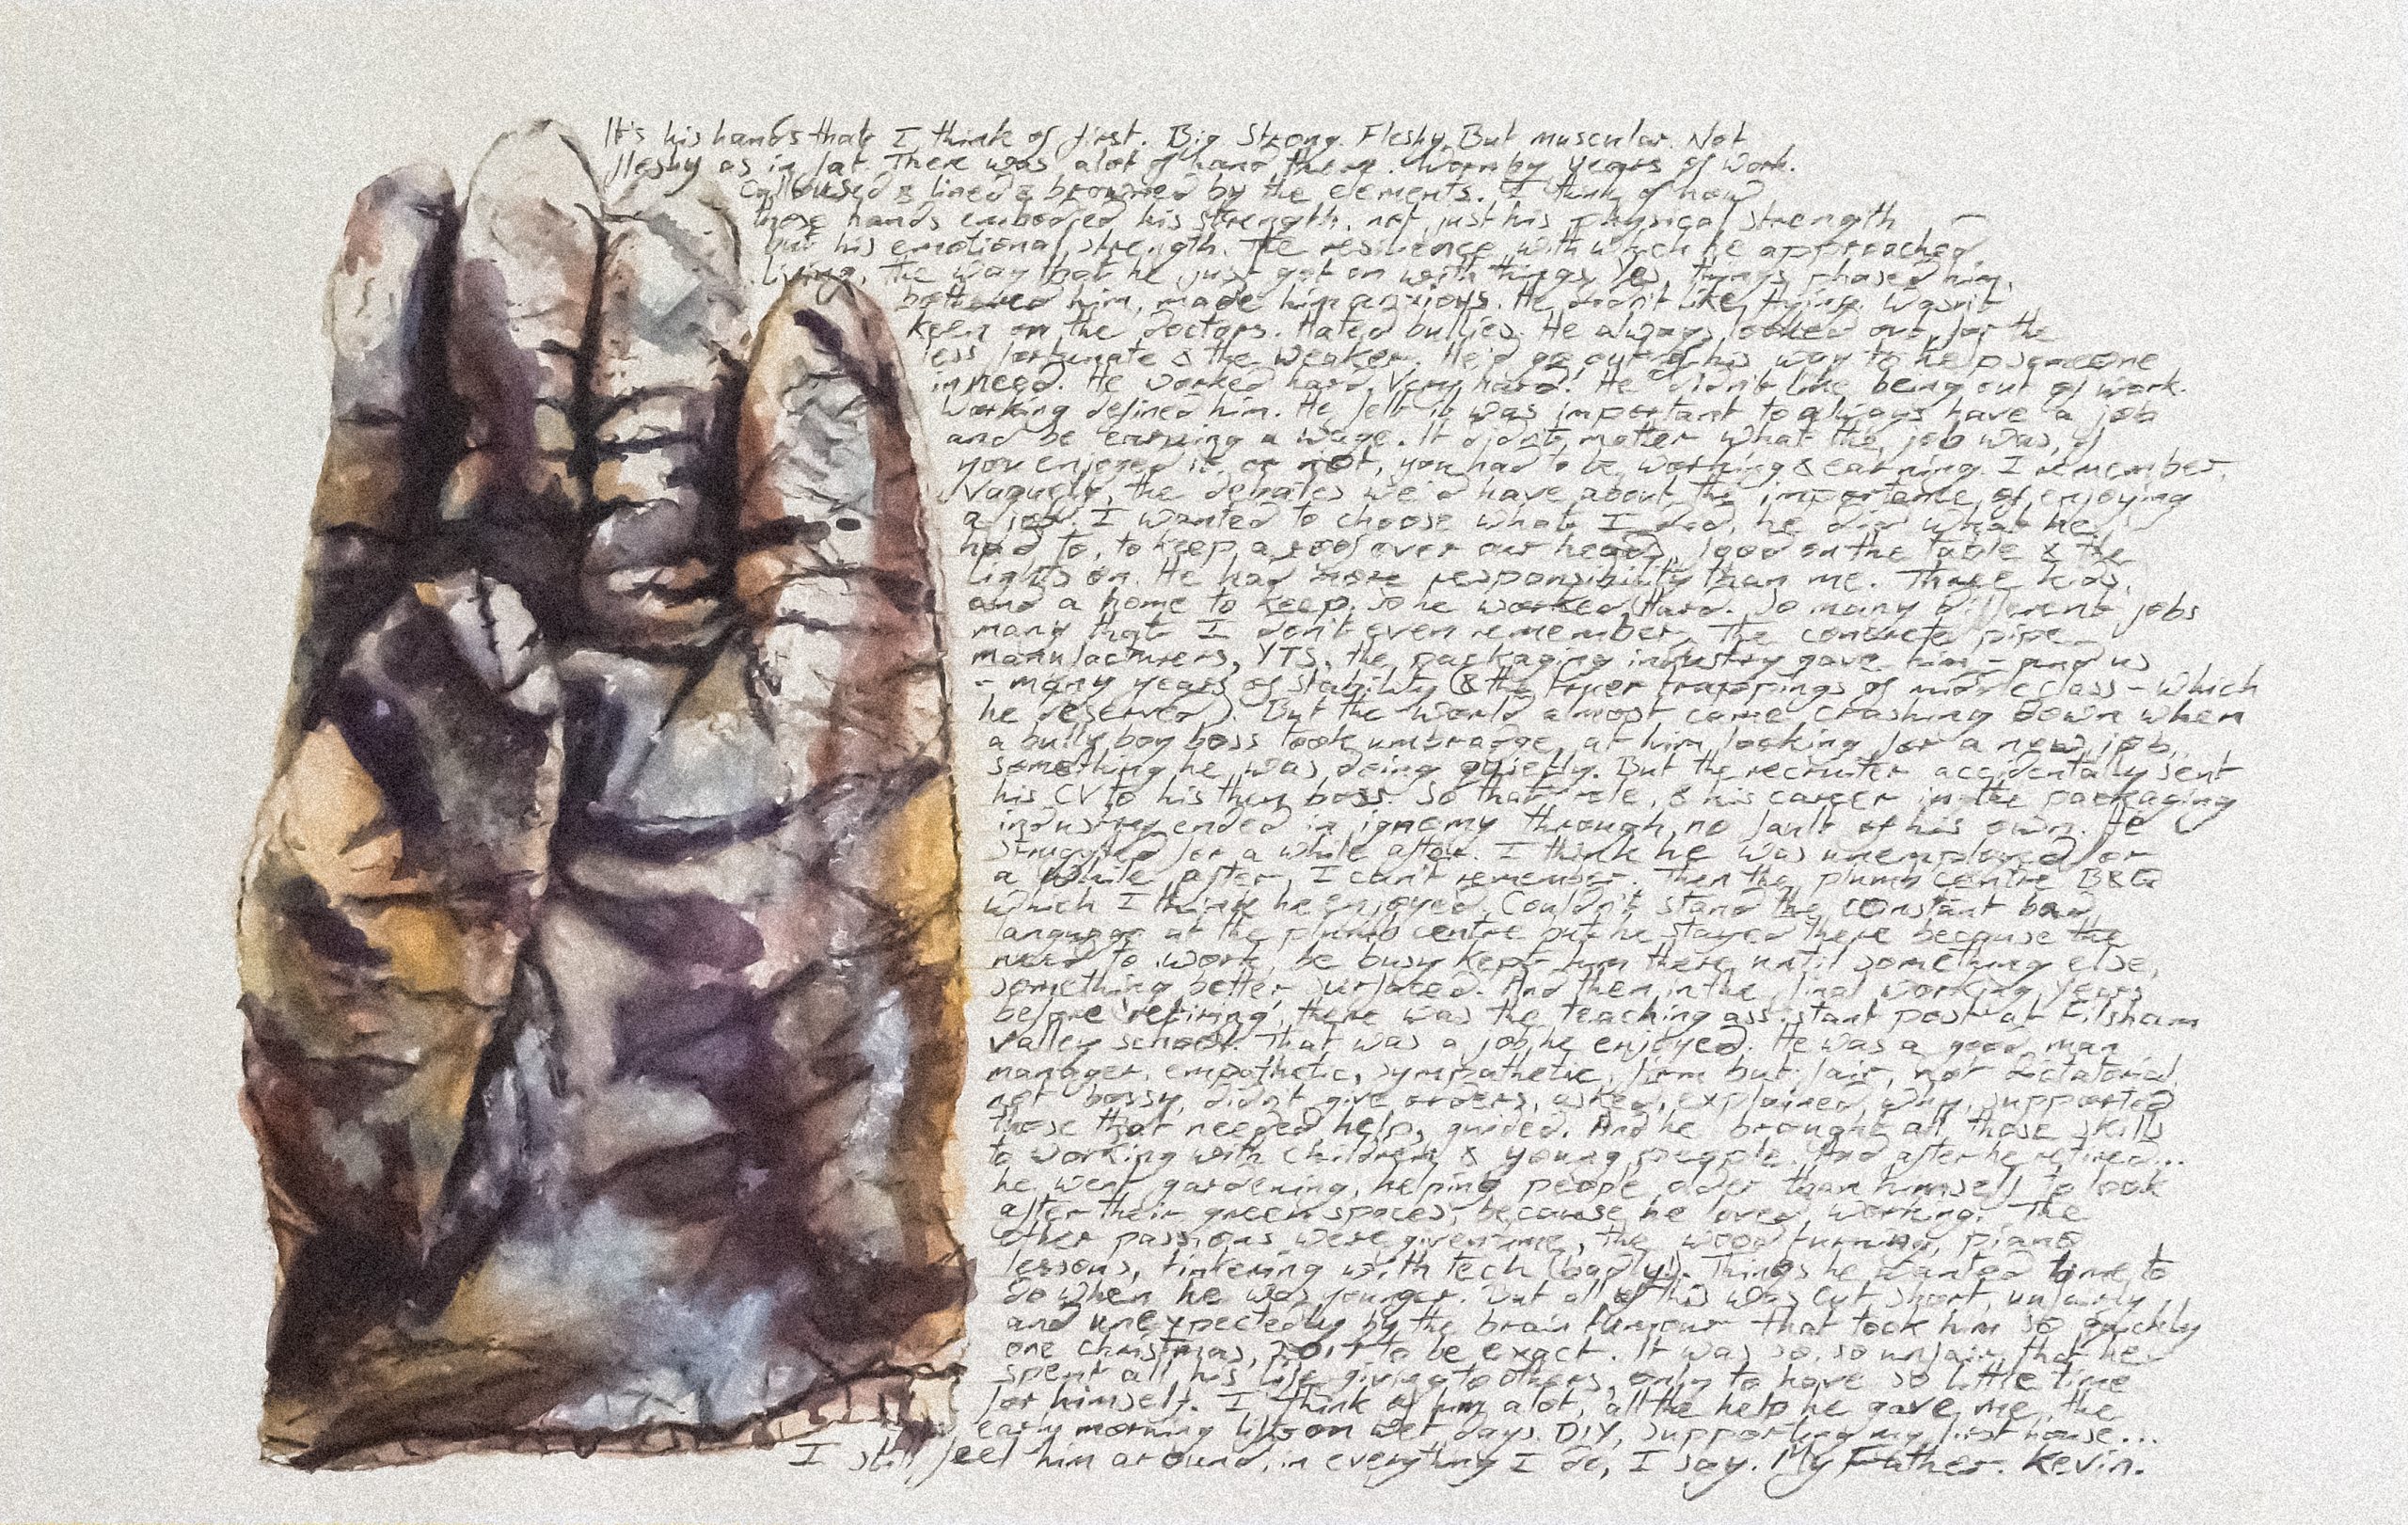 It's his hands that I think of first. Big Strong. Fleshy. But muscular. Not
fleshy as in fat There was alot of hand there. Worn by years of work.
Calloused & lined & browned by the elements. I think of how
those hands embodied his strength. not just his physical strength
but his emotional strength. The resilience with which he approached
living, the way that he just got on with things. Yes, things phased him,
bothered him, made him anxious. He didn't like flying. Wasn't
keen on the doctors. Hated bullies. He always looked out for the
less fortunate & the weaker. He'd go out of his way to help someone
in need. He worked hard. Very hard. He didn't like being out of work.
Working defined him. He felt it was important to always have a job
and be earning a wage. It didn't matter what the job was, if
you enjoyed it, or not, you had to be working & earning. I remember,
vaguely, the debates we'd have about the importance of enjoying
a job. I wanted to choose what I did, he did what he
had to, to keep a roof over our heads, food on the table & the
lights on. He had more responsibility than me. Three kids,
and a home to keep, so he worked. Hard. So many different jobs
many that I don't even remember. The concrete pipe
manufacturers, YTS, the packaging industry gave him - and us
- many years of stability (& the trappings of middle class - which
he deserved). But the world almost came crashing down when
a bully boy boss took umbradge at him looking for a new job,
something he was doing quietly. But the recruiter accidentally sent
his CV to his then boss. So that role, & his career in the packaging
industry ended in ignomy through no fault of his own. He
struggled for a while after. I think he was unemployed for
a while after, I can't remember. Then the plumb centre B&Q
which I think he enjoyed. Couldn't stand the constant bad
language at the plumb centre but he stayed there because the
need to work, be busy kept him there until something else,
something better surfaced. And then, in the final working years
before 'retiring', there was the teaching assistant post at Eilsham
Valley school. That was a job he enjoyed. He was a good man
manager. empathetic, sympathetic, firm but fair, not dictatorial,
not bossy, didn't give orders, asked, explained why, supported
those that needed help, guided. And he brought all those skills
to working with children & young people. And after he retired...
he went gardening, helping people older than himself to look
after their green spaces, because he loved working. The
other passions were given time, the wood turning, piano
lessons, tinkering with tech (badly!). Things he wanted time to
do when he was younger. But all of this was cut short, unfairly
and unexpectedly by the brain tumour that took him so quickly
one christmas, to be exact. It was so, so unfair that he
spent all his life giving to others, only to have so little time
for himself. I think of him alot, all the help he gave me, the
early morning lifts on wet days. DIY, supporting my first house...
I still feel him around, in everything I do, I say. My Father. Kevin.